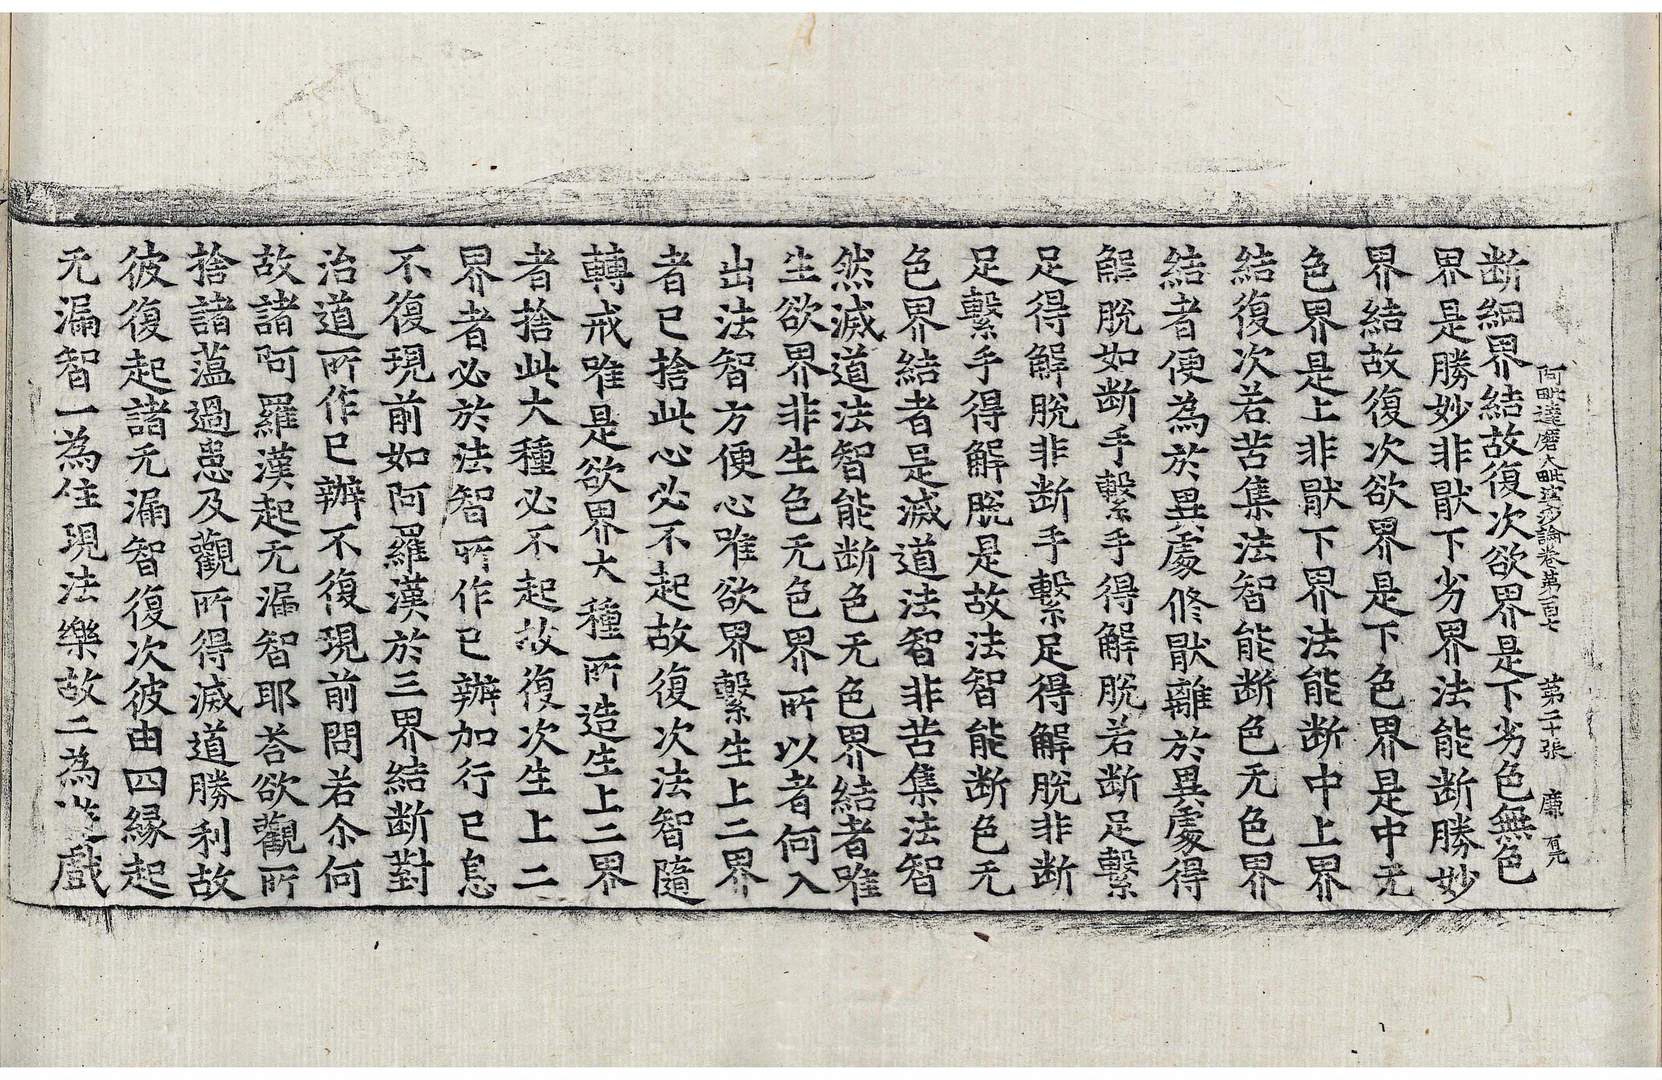 阿毗達磨大毗婆沙論卷第百七 第二十張 廉
断細界結故復次欲界是下劣色無色
界是勝妙非猒下劣界法能断勝妙
界結故復次欲界是下色界是中无
色界是上非猒下界法能断中上界
結復次若苦集法智能断色无色界
結者便為於異處修猒離於異處得
解脫如断手繫手得解脫若断足繫
足得解脫非断手繫足得解脫非断
足繫手得解脫是故法智能断色无
色界結者是滅道法智非苦集法智
然滅道法智能断色无色界結者唯
生欲界非生色无色界所以者何入
出法智方便心唯欲界繫生上二界
者已捨此心必不起故復次法智隨
轉戒唯是欲界大種所造生上二界
者捨此大種必不起故復次生上二
界者必於法智所作已辦加行已息
不復現前如阿羅漢於三界結断對
治道所作已辦不復現前問若尒何
故諸阿羅漢起无漏智耶荅欲觀所
捨諸蘊過患及觀所得滅道勝利故
彼復起諸无漏智復次彼由四緣起
无漏智一為住現法樂故二為遊戲